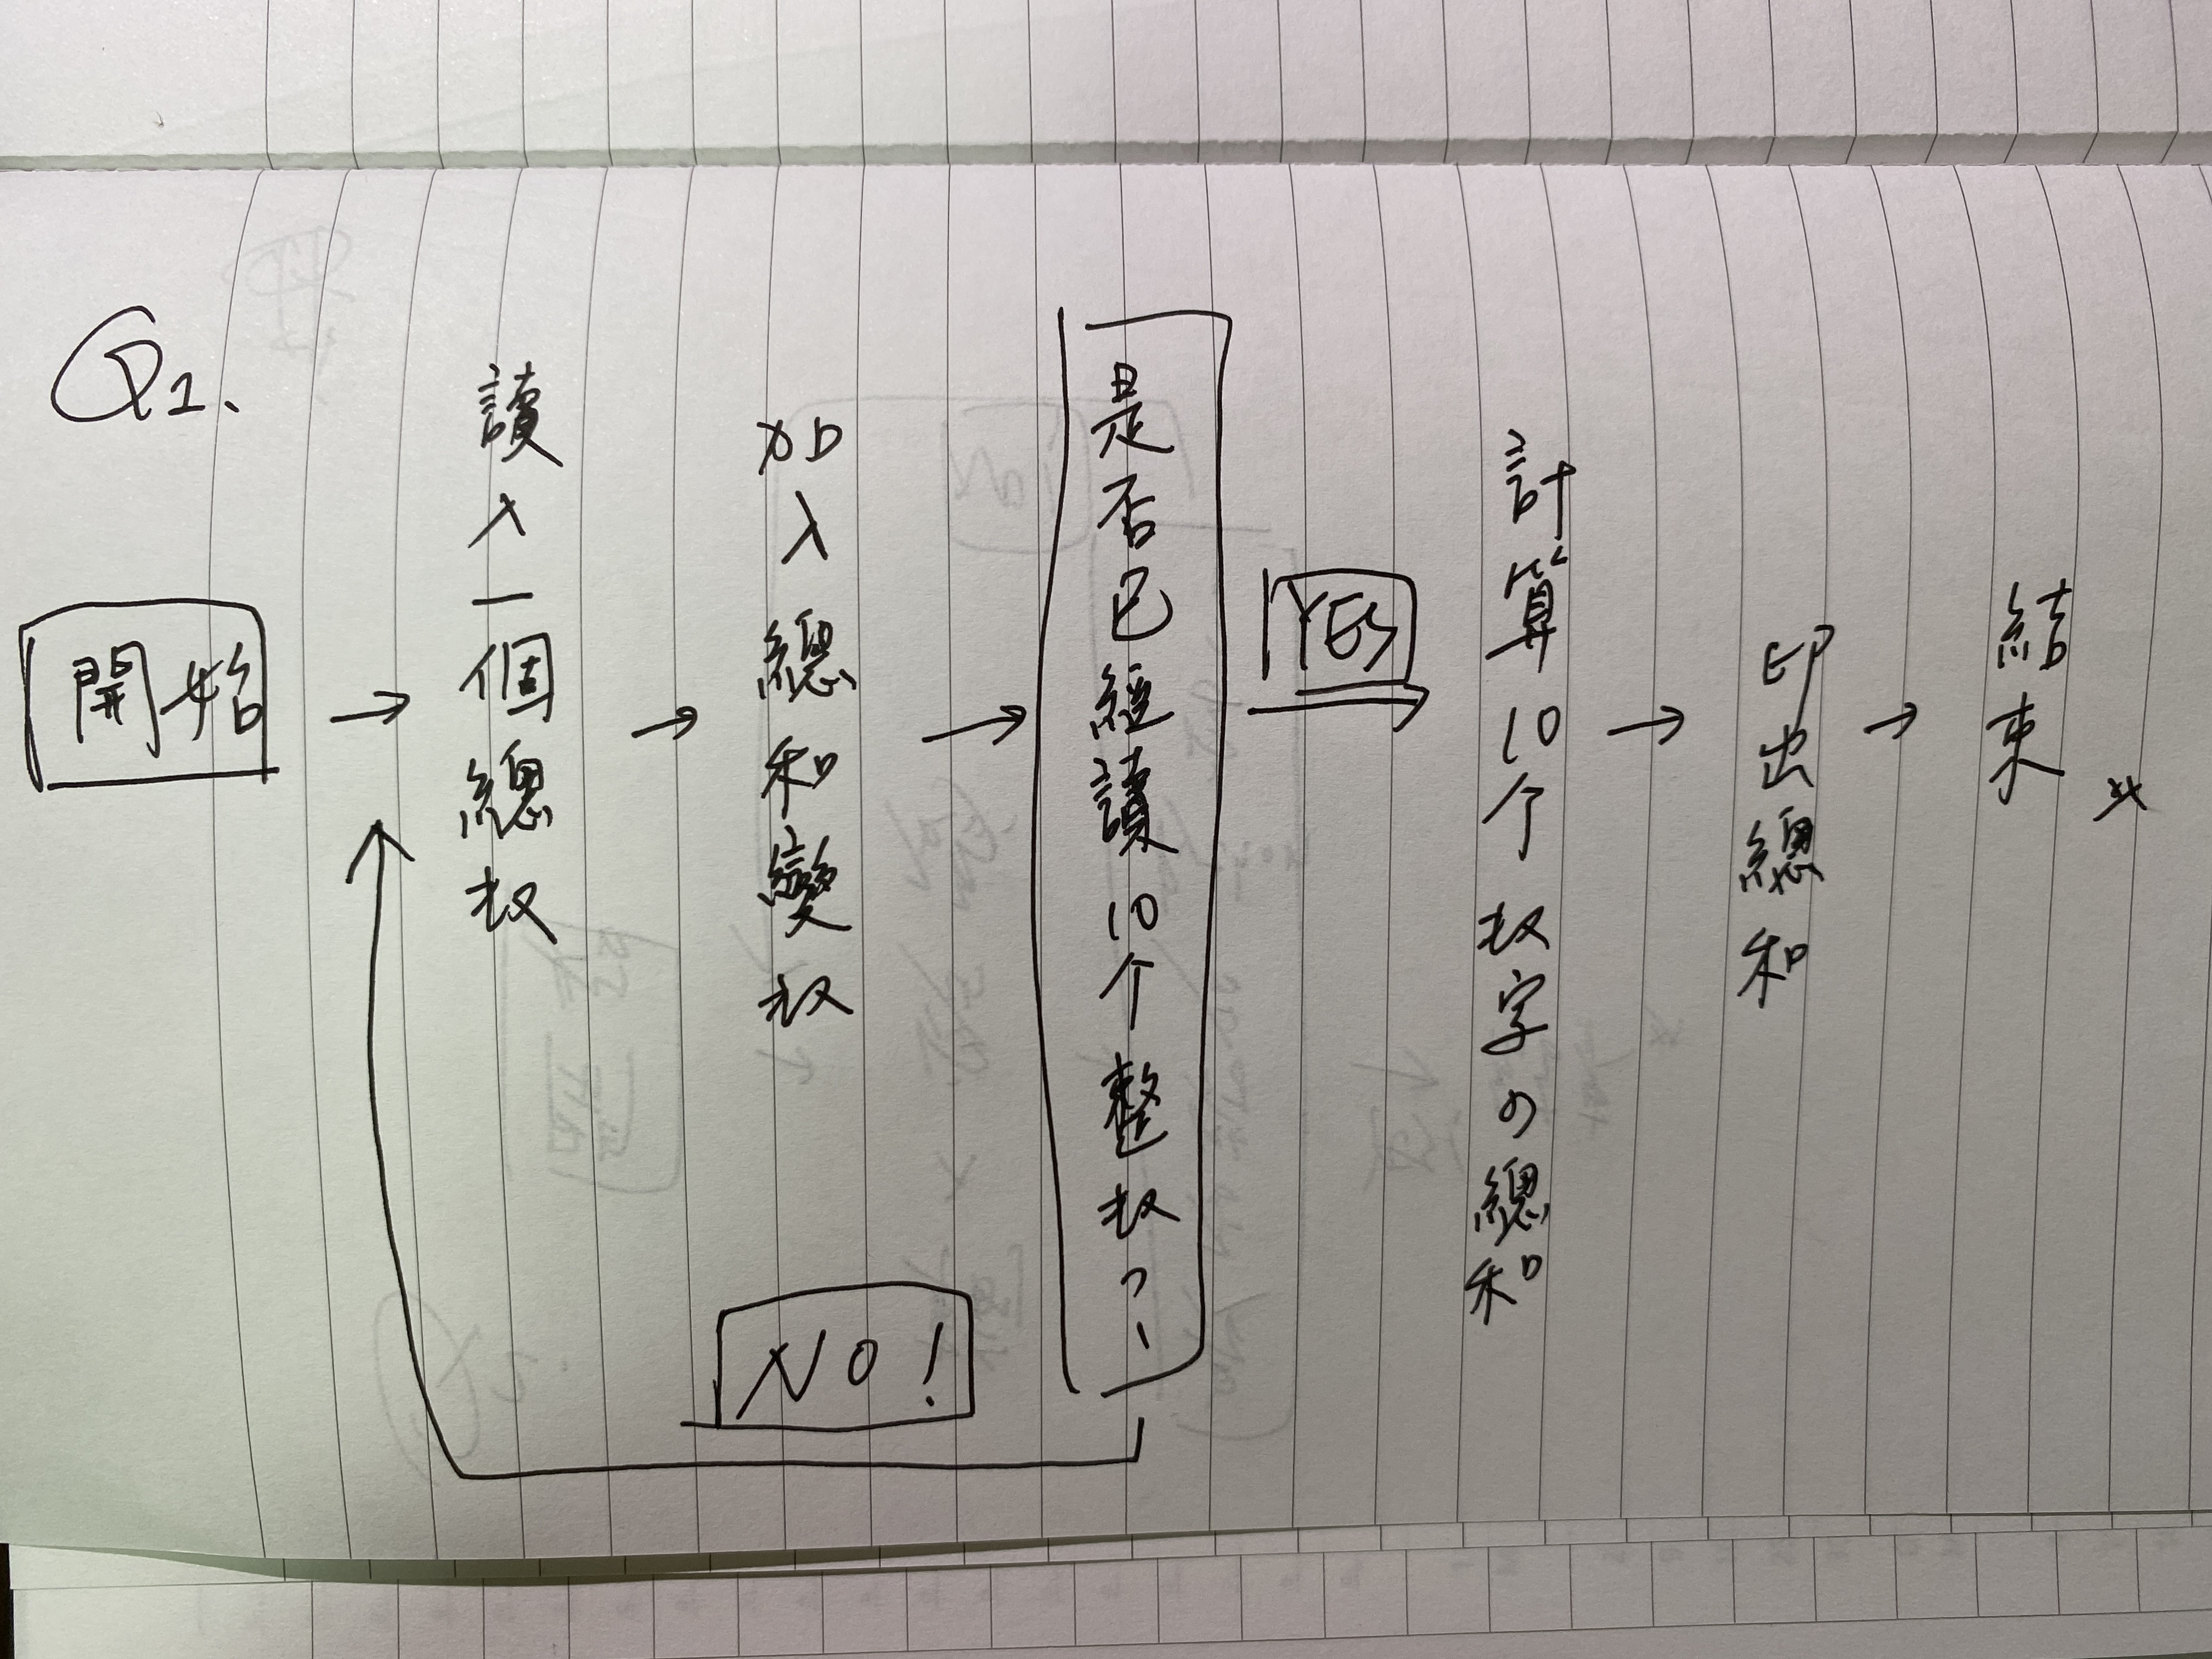 Q1.
開始
讀入一個總數
加入總和變數
是否已經讀10个整數?
NO!
YES
計算10个數字の總和
印出總和
結束